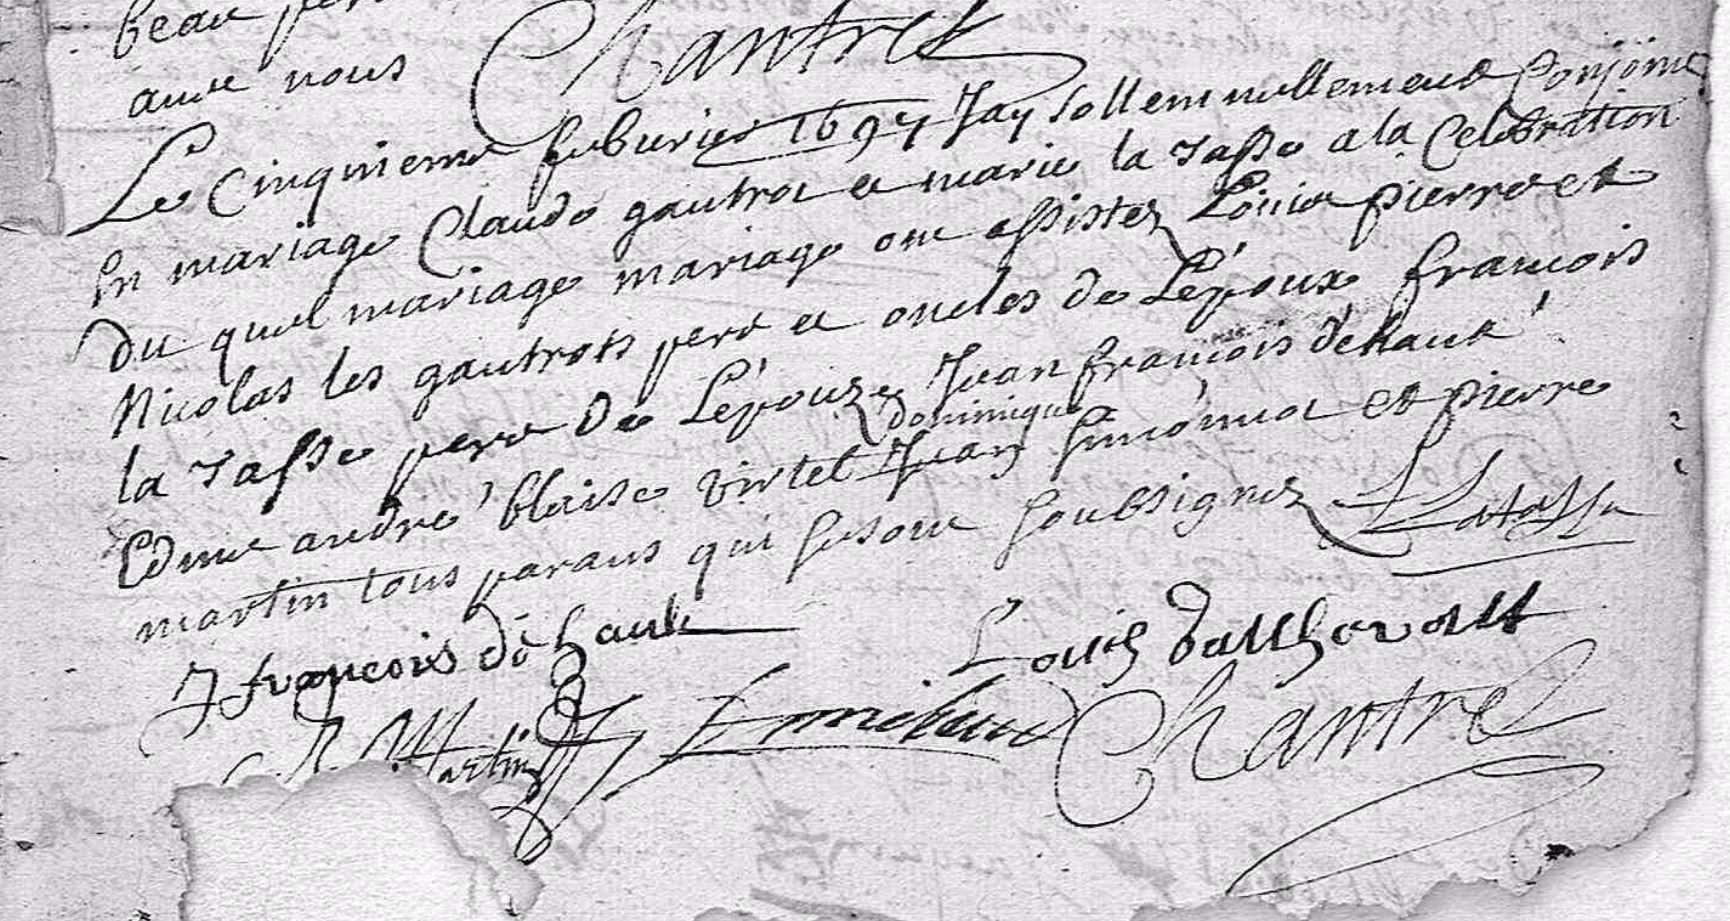 beau per
avec nous Chantret
Le Cinquieme feburier 1697 Jay sollemnellement Conjoinct
En mariage Claude gautrot et marie la Tasse a la Celebration
Du quel mariage mariage ont assistez Louis pierre et
Nicolas les gautrots pere et oncles de L'époux francois
la Tasse pere de L'épouze Jean francois déhault
Edme andré blaise virtel Jean dominique simonnot et pierre
martin tous parans qui se sont soubsignez L Latasse
J francois déhault Louis
Martin Chantret